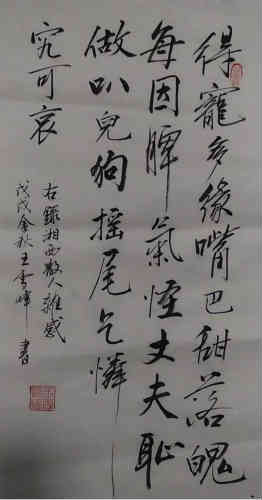 得寵多緣嘴巴甜落魄
每因脾氣怪丈夫恥
做叭兒狗搖尾乞憐
究可哀
右錄湘西散人雜感
戊戌金秋王雲峰書